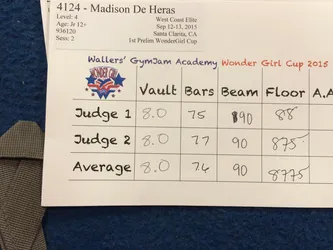 4124 - Madison De Heras
Level: 4 West Coast Elite
Age: Jr 12+ Sep 12-13, 2015
936120 Santa Clarita, CA
Sess: 2 1st Prelim WonderGirl Cup
Wallers' GymJam Academy Wonder Girl Cup 2015
WONDER GIRL CUP Vault Bars Beam Floor A.A
Judge 1 8.0 75 90 88
Judge 2 8.0 77 90 875
Average 8.0 76 90 8775